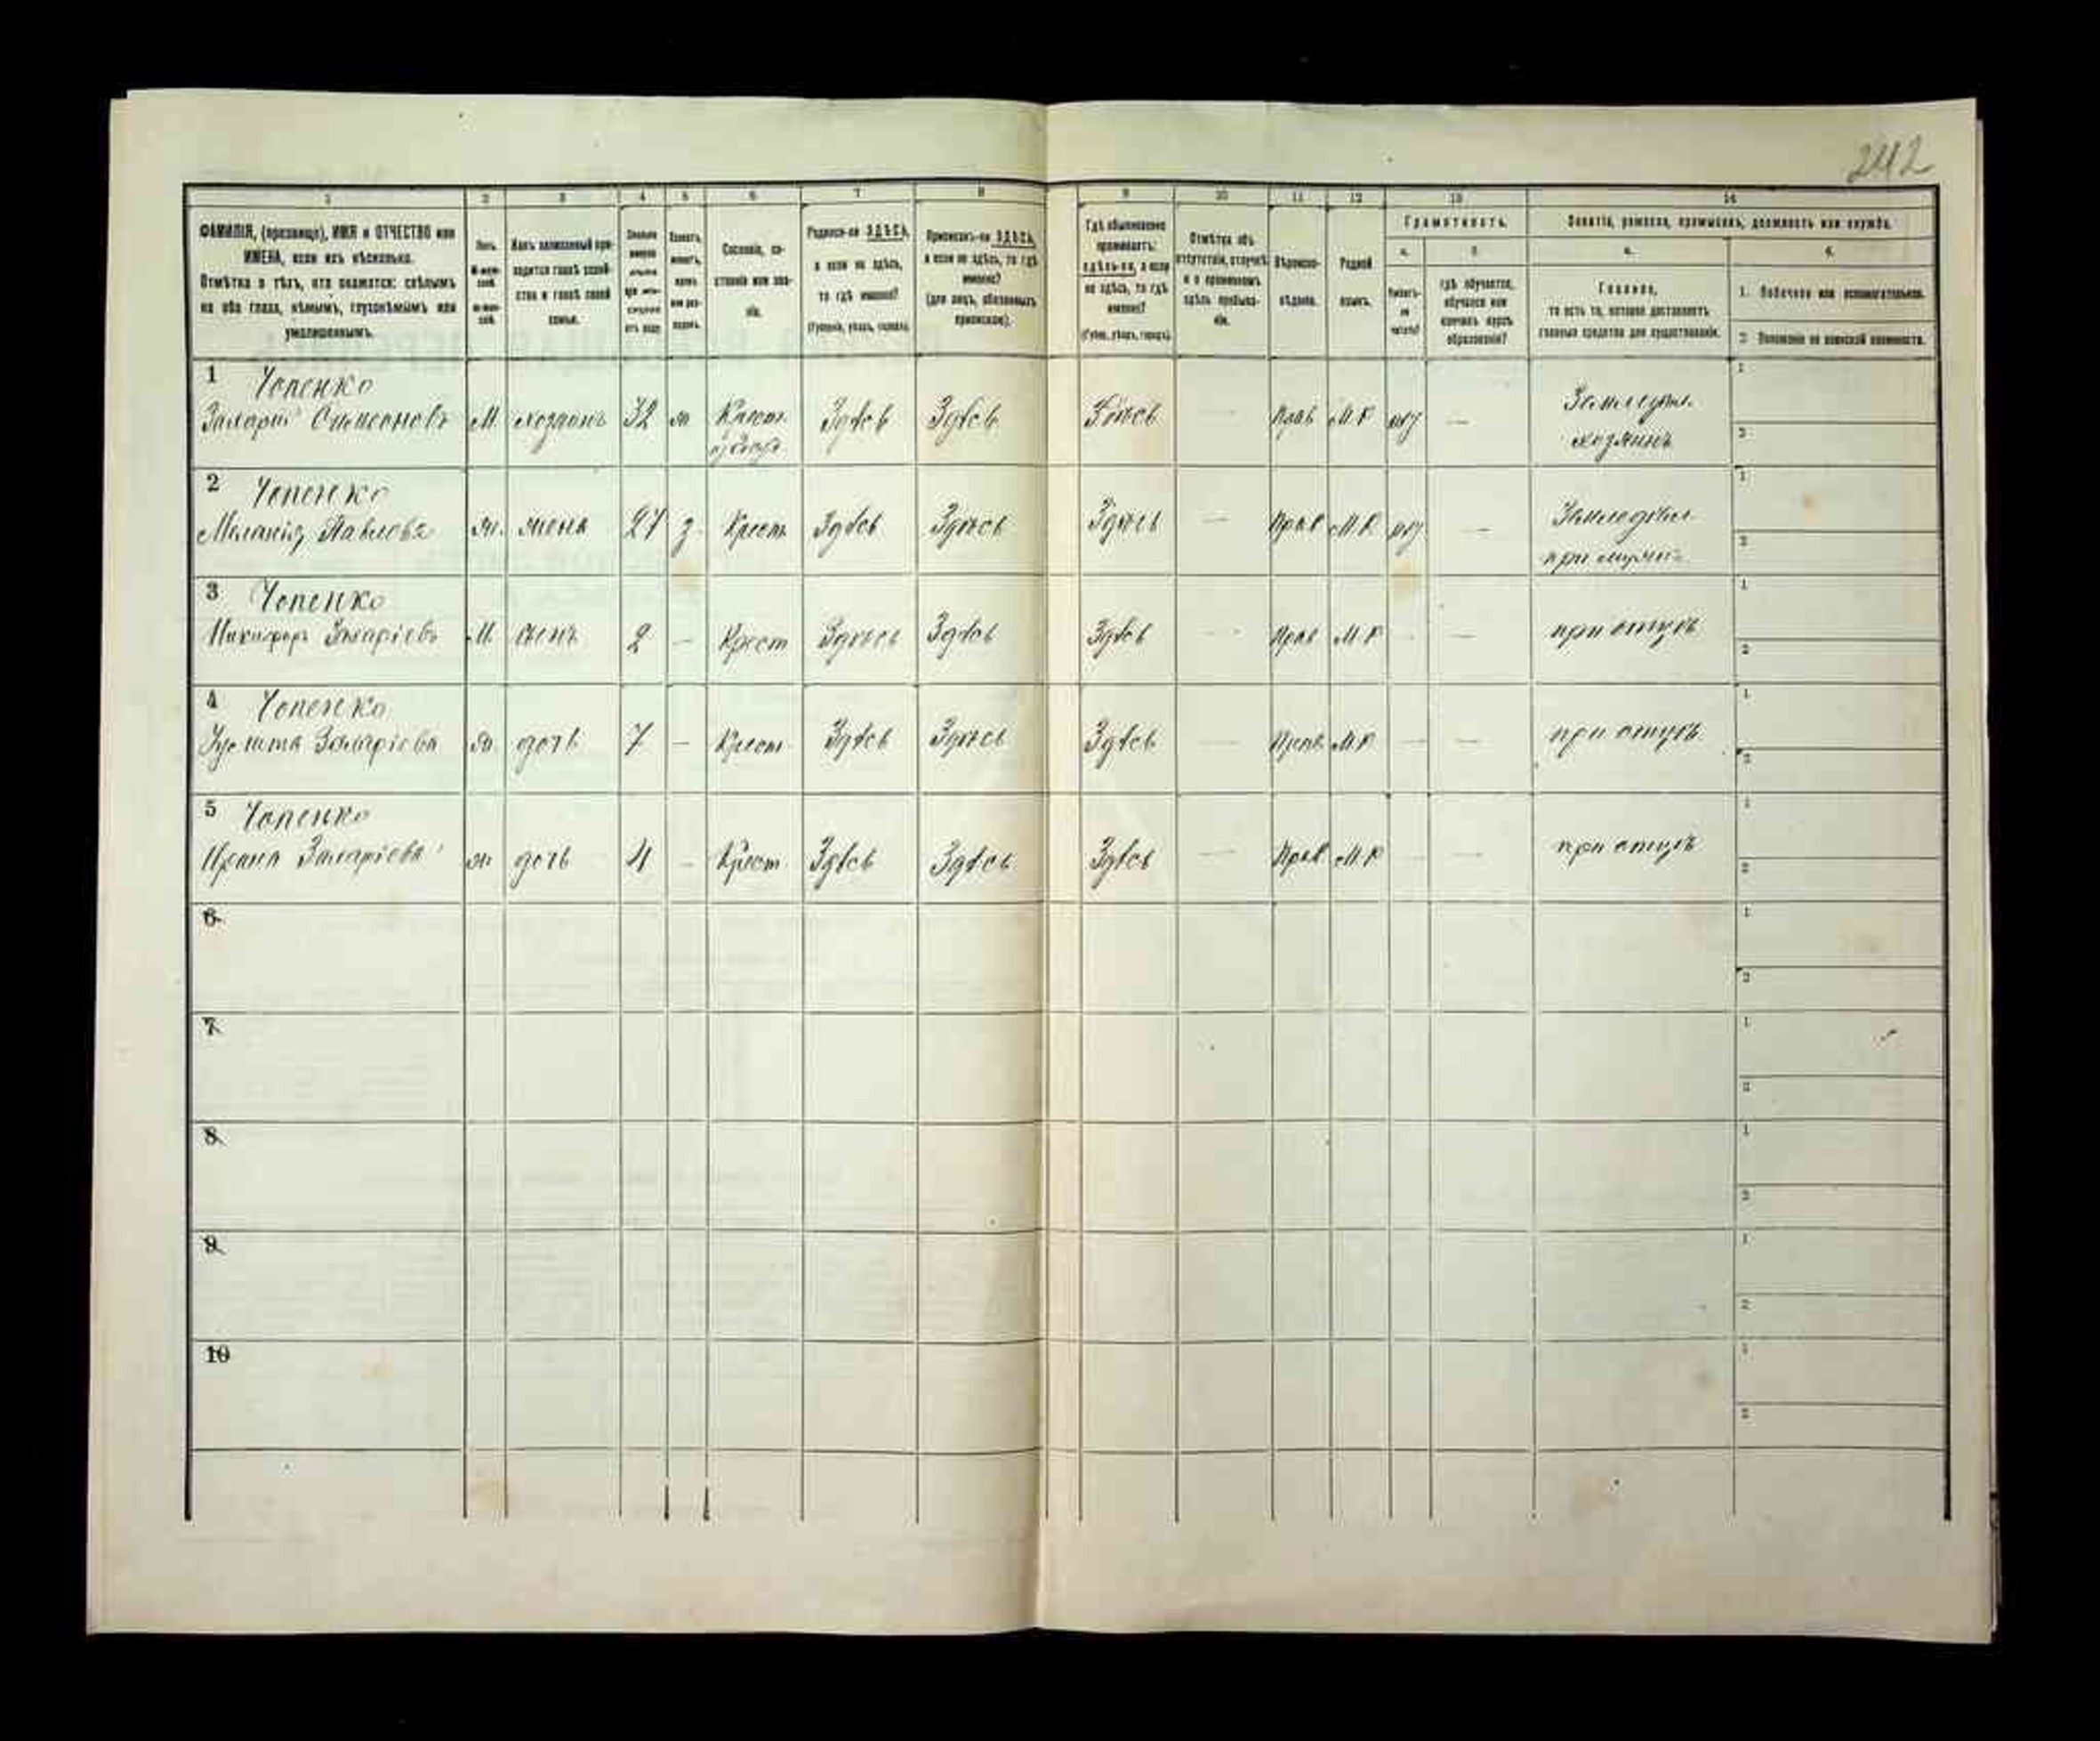 242
1 2 3 4 5 6 7 8 9 10 11 12 13 14
ФАМИЛІЯ, (прозвище), ИМЯ и ОТЧЕСТВО или
ИМЕНА, если ихъ нѣсколько.
Отмѣтка о тѣхъ, кто окажется: слѣпымъ
на оба глаза, нѣмымъ, глухонѣмымъ или
умалишеннымъ.
Полъ.
Какъ записанный при-
ходится главѣ хозяй-
ства и главѣ своей
семьи.
Сословіе, со-
стояніе или зва-
ніе.
Родился-ли ЗДѢСЬ,
а если не здѣсь,
то гдѣ именно?
(Губернія, уѣздъ, городъ).
Приписанъ-ли ЗДѢСЬ,
а если не здѣсь, то гдѣ
именно?
(для лицъ, обязанныхъ
припискою).
Гдѣ обыкновенно
проживаетъ:
здѣсь-ли, а если
не здѣсь, то гдѣ
именно?
(Губ., уѣздъ, городъ).
Отмѣтка объ
отсутствіи, отлучкѣ
и о временномъ
здѣсь пребыва-
ніи.
Вѣроиспо-
вѣданіе.
Родной
языкъ.
Грамотность.
а. б.
Умѣетъ-
ли
читать?
гдѣ обучается,
обучался или
кончилъ курсъ
образованія?
Занятіе, ремесло, промыселъ, должность или служба.
а. б.
Главное,
то есть то, которое доставляетъ
главныя средства для существованія.
1. Побочное или вспомогательное.
2. Положеніе по воинской повинности.
1 Чопенко
Захарій Симеоновъ М хозяинъ 32 ж Крест. Здѣсь Здѣсь Здѣсь — Прав М.Р — хозяинъ 1 2
2 Чопенко
Меланія Павлова ж. жена 27 з. Крест Здѣсь Здѣсь Здѣсь — Прав М.Р. — 1 2
3 Чопенко
Никифоръ Захаріевъ М. сынъ 2 — Крест Здѣсь Здѣсь Здѣсь — Прав М.Р — — при отцѣ 1 2
4 Чопенко
Захаріева ж дочь 7 — Крест Здѣсь Здѣсь Здѣсь — Прав М.Р — — при отцѣ 1 2
5 Чопенко
Ирина Захаріева ж дочь 4 — Крест Здѣсь Здѣсь Здѣсь — Прав М.Р — — при отцѣ 1 2
6 1 2
7 1 2
8 1 2
9 1 2
10 1 2